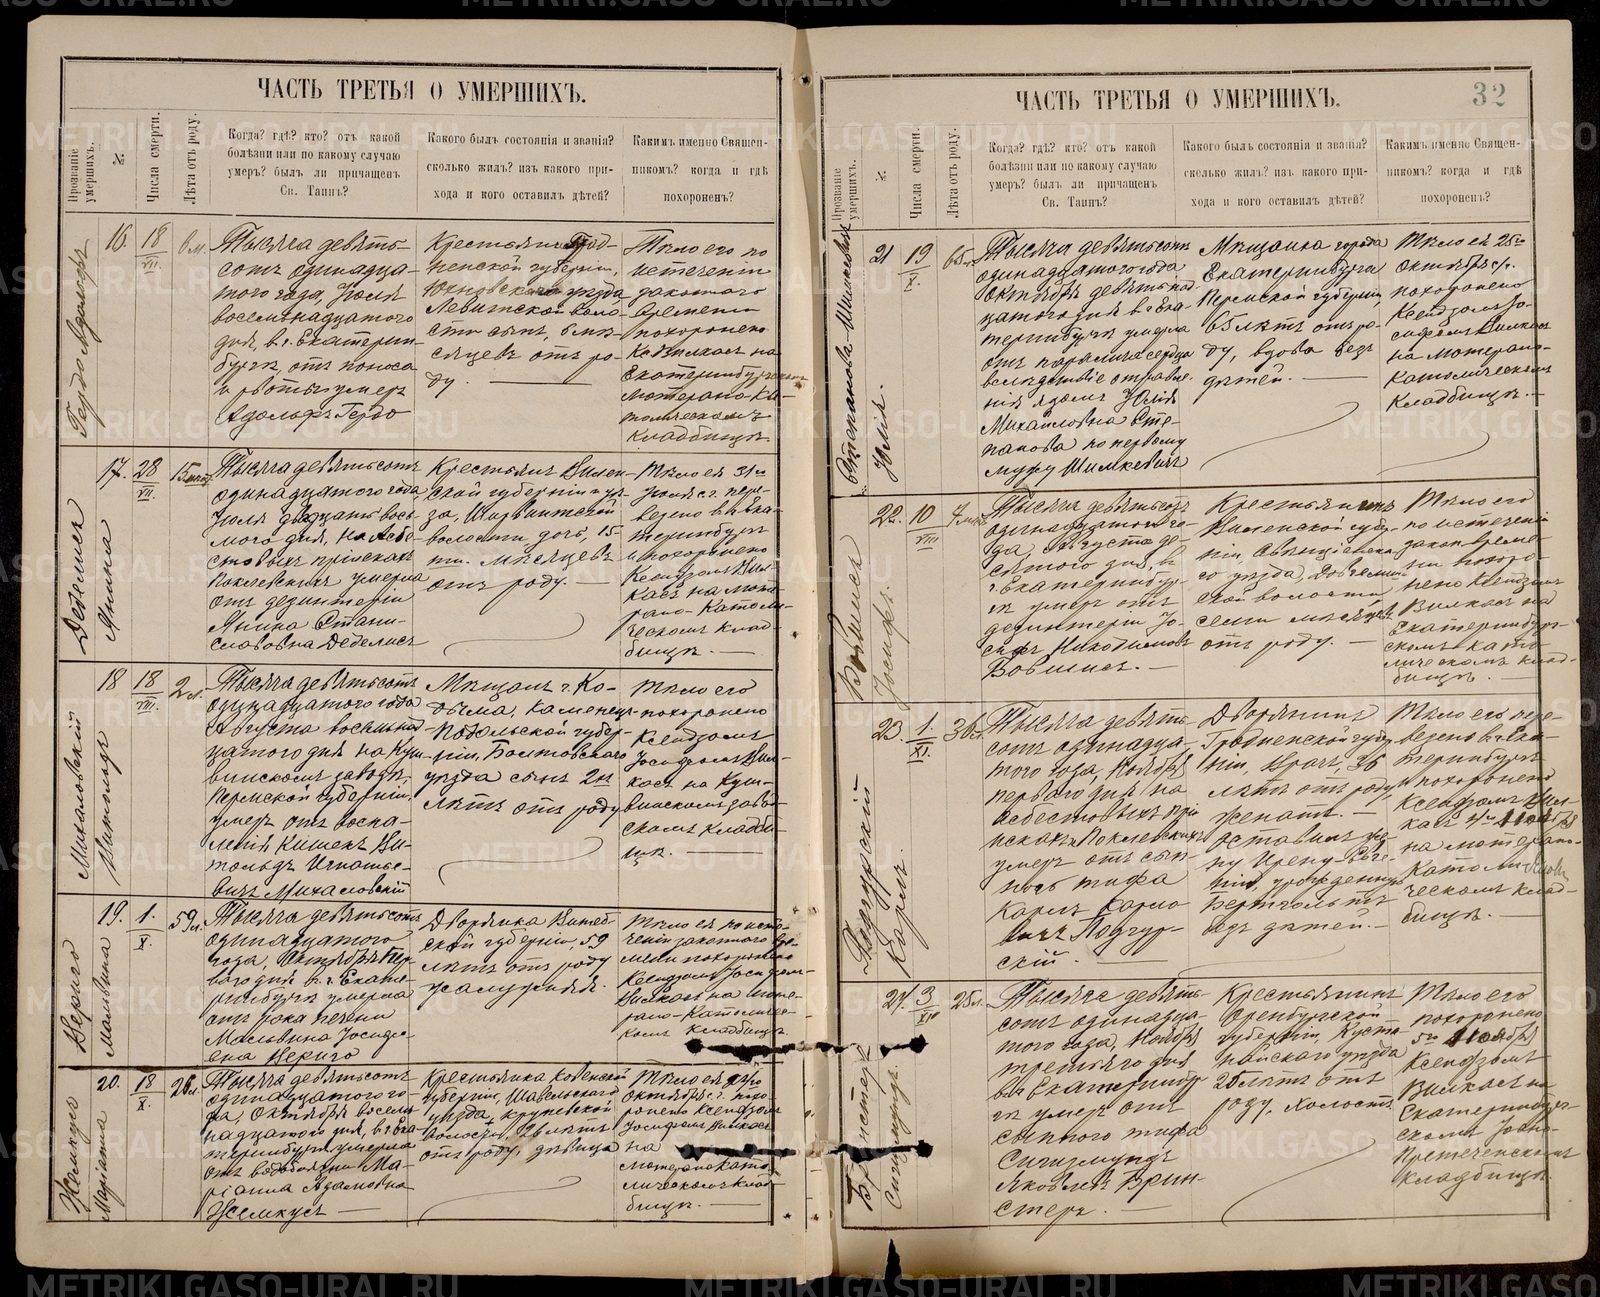 ЧАСТЬ ТРЕТЬЯ О УМЕРШИХЪ.
Прозваніе умершихъ.
№
Числа смерти.
Лѣта отъ роду.
Когда? гдѣ? кто? отъ какой
болѣзни или по какому случаю
умеръ? былъ ли причащенъ
Св. Таинъ?
Какого былъ состоянія и званія?
сколько жилъ? изъ какого при-
хода и кого оставилъ дѣтей?
Какимъ именно Священ-
никомъ? когда и гдѣ
похороненъ?
Гердо Адольфъ
16.
18
VII.
6 м.
Тысяча девять-
сотъ одинадца-
того года, Іюля
восемьнадцатого
дня, в г. Екатерин-
бургѣ, отъ поноса
и рвоты умеръ
Адольфъ Гердо
Крестьянинъ Грод-
ненской губерніи,
уѣзда
воло-
сти сынъ, 6 мѣ-
сяцевъ отъ ро-
ду.
Тѣло его по
истеченіи
законнаго
времени
похоронено
Кс. Вилкасъ на
Екатеринбургскомъ
Ка-
толическомъ
кладбищѣ.
Деделисъ
Янина
17.
28
VII.
15 мѣс.
Тысяча девятьсотъ
одинадцатого года
Іюля двадцать вось-
мого дня, на Асбе-
стовыхъ пріискахъ
Поклевскихъ умерла
отъ дезинтеріи
Янина Стани-
славовна Деделисъ
Крестьянъ Вилен-
ской губерніи и уѣз-
да, Ширвинтской
волости дочь, 15-
ти мѣсяцевъ
отъ роду.
Тѣло ея 31го
Іюля с.г. пере-
везено в Ека-
теринбургъ
и похоронено
Ксендзомъ Вил-
касъ на
Католи-
ческомъ клад-
бищѣ.
Михаловскій
Витольдъ
18
18
VIII.
2 л.
Тысяча девятьсотъ
одинадцатого года
Августа восемьнад-
цатого дня на Куш-
винскомъ заводѣ,
Пермской губерніи,
умеръ отъ воспа-
ленія кишекъ Ви-
тольдъ Игнатье-
вичъ Михаловскій
Мѣщанъ г. Ко-
дыма, Каменец-
Подольской губер-
ніи, Балтовскаго
уѣзда сынъ 2хъ
лѣтъ отъ роду
Тѣло его
похоронено
Ксендзомъ
Іосифомъ Вил-
касъ на Куш-
винскомъ завод-
скомъ кладби-
щѣ.
Нериго
Мальвина
19.
1.
X.
59 л.
Тысяча девятьсотъ
одинадцатого
года, Октября пер-
ваго дня в г. Екате-
ринбургѣ умерла
отъ рака печени
Мальвина Іосифо-
вна Нериго
Дворянка Витеб-
ской губерніи, 59
лѣтъ отъ роду
замужняя.
Тѣло ея по исте-
ченіи законного вре-
мени похоронено
Ксендзомъ Іосифомъ
Вилкасъ на
Католичес-
комъ кладбищѣ.
Желкусъ
Маріанна
20.
18
X.
26 л.
Тысяча девятьсотъ
одинадцатого го-
да, Октября восемь-
надцатого дня, в г. Ека-
теринбургѣ умерла
отъ водобоязни Ма-
ріанна Адамовна
Желкусъ
Крестьянка Ковенской
губерніи, Шавельскаго
уѣзда, Крупевской
волости, 26 лѣтъ
отъ роду, дѣвица
Тѣло ея
Октября с.г. похо-
ронено Ксендзомъ
Іосифомъ Вилкасъ
на
като-
лическомъ клад-
бищѣ.
32
ЧАСТЬ ТРЕТЬЯ О УМЕРШИХЪ.
Прозваніе умершихъ.
№
Числа смерти.
Лѣта отъ роду.
Когда? гдѣ? кто? отъ какой
болѣзни или по какому случаю
умеръ? былъ ли причащенъ
Св. Таинъ?
Какого былъ состоянія и званія?
сколько жилъ? изъ какого при-
хода и кого оставилъ дѣтей?
Какимъ именно Священ-
никомъ? когда и гдѣ
похороненъ?
Степанова-Шимкевичъ
Юлія.
21
19
X.
65 л.
Тысяча девятьсотъ
одинадцатого года
Октября девятнад-
цатого дня в г. Ека-
теринбургѣ умерла
отъ паралича сердца
вслѣдствіе отравле-
нія ядомъ Юлія
Михайловна Сте-
панова по первому
мужу Шимкевичъ
Мѣщанка города
Екатеринбурга
Пермской губерніи
65 лѣтъ отъ ро-
ду, вдова безъ
дѣтей.
Тѣло ея 25го
Октября с/г.
похоронено
Ксендзомъ Іо-
сифомъ Вилкасъ
на
Католическомъ
кладбищѣ.
Вовилисъ
Іосифъ.
22.
10
VIII
7 мѣс.
Тысяча девятьсотъ
одинадцатого го-
да, Августа де-
сятого дня, в
г. Екатеринбур-
гѣ умеръ отъ
дезинтеріи Іо-
сифъ Никодимовъ
Вовилисъ.
Крестьянинъ
Виленской губер-
ніи, Свенцянска-
го уѣзда,
ской волости
семи мѣсяцевъ
отъ роду.
Тѣло его
по истеченіи
закон. време-
ни похоро-
нено Ксендзомъ
Вилкасъ на
Екатеринбург-
скомъ като-
лическомъ клад-
бищѣ.
Подгурскій
Карлъ.
23.
1
XI.
36 л.
Тысяча девять-
сотъ одинадца-
того года, Ноября
перваго дня на
Асбестовыхъ прі-
искахъ Поклевскихъ
умеръ отъ сып-
ного тифа
Карлъ Карло-
вичъ Подгур-
скій.
Дворянинъ
Гродненской губер-
ніи, Врачъ, 36
лѣтъ отъ роду,
женатъ.
Оставилъ же-
ну Ирену-Евге-
нію, урожденную
Бертгольтъ
безъ дѣтей.
Тѣло его пере-
везено в г. Ека-
теринбургъ
и похоронено
Ксендзомъ Вил-
касъ 4го Ноября
на
Католи-
ческомъ клад-
бищѣ.
Бринстеръ
Сигизмундъ.
24.
3
XI
25 л.
Тысяча девять-
сотъ одинадца-
того года, Ноября
третьяго дня
въ Екатеринбур-
гѣ умеръ отъ
сыпного тифа
Сигизмундъ
Яковлевъ Брин-
стеръ.
Крестьянинъ
Оренбургской
губерніи, Куста-
найскаго уѣзда
25 лѣтъ отъ
роду, холостъ
Тѣло его
похоронено
5го Ноября
Ксендзомъ
Вилкасъ на
Екатеринбург-
скомъ Іоано-
Предтеченскомъ
кладбищѣ.
METRIKI.GASO-URAL.RU